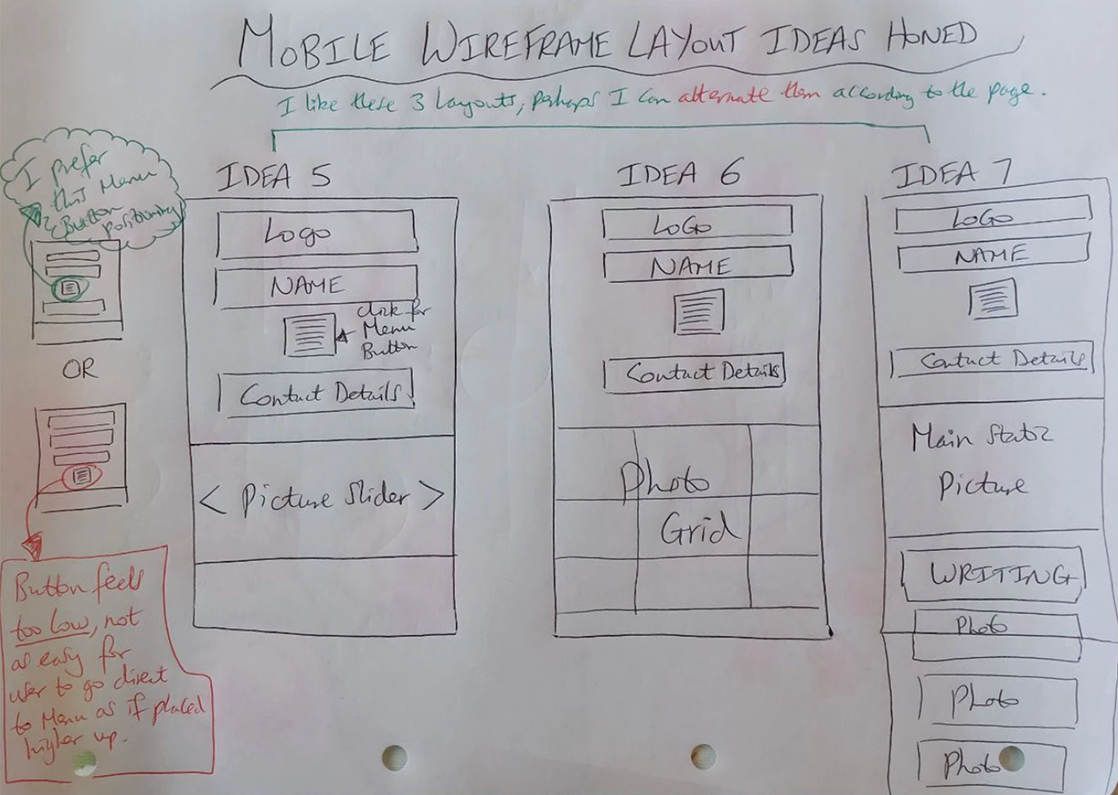 MOBILE WIREFRAME LAYOUT IDEAS HONED
I like these 3 Layouts, perhaps I can alternate them according to the page.
I prefer
this Menu
Button
positioning
OR
Button feels
too low, not
as easy for
user to go direct
to Menu as if placed
higher up.
IDEA 5
Logo
NAME
click for
Menu
Button
Contact Details
< Picture Slider >
IDEA 6
LOGO
NAME
Contact Details
Photo
Grid
IDEA 7
LOGO
NAME
Contact Details
Main Static
Picture
WRITING
Photo
Photo
Photo